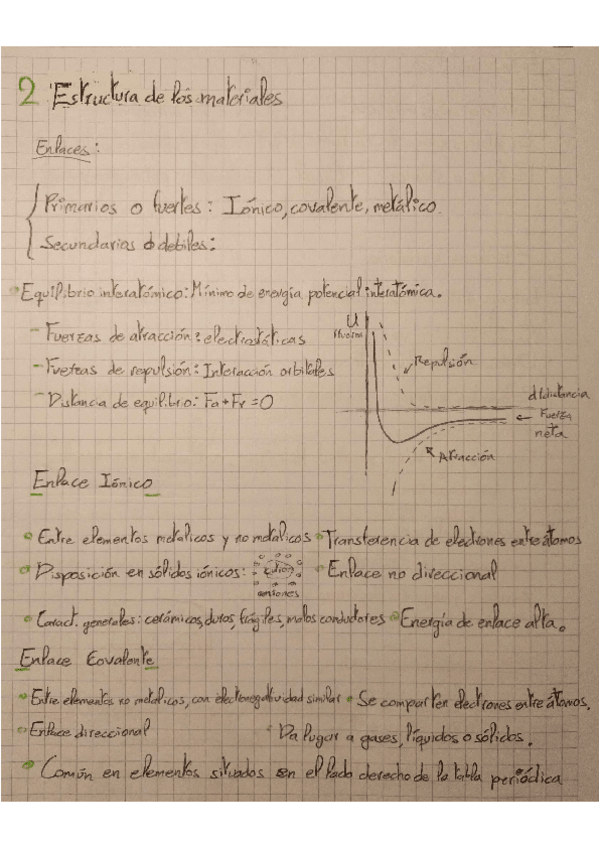 2 Estructura de los materiales
Enlaces:
Primarios o fuertes: Iónico, covalente, metálico
Secundarios o débiles:
Equilibrio interatómico: Mínimo de energía potencial interatómica.
- Fuerzas de atracción: electrostáticas
- Fuerzas de repulsión: Interacción orbitales
- Distancia de equilibrio: Fa + Fr = 0
U
Repulsión
distancia
Fuerza
neta
Atracción
Enlace Iónico
Entre elementos metálicos y no metálicos
Transferencia de electrones entre átomos
Disposición en sólidos iónicos:
aniones
Enlace no direccional
Caract. generales: cerámicos, duros, frágiles, malos conductores
Energía de enlace alta.
Enlace Covalente
Entre elementos no metálicos, con electronegatividad similar
Se comparten electrones entre átomos.
Enlace direccional
Da lugar a gases, líquidos o sólidos.
Común en elementos situados en el lado derecho de la tabla periódica